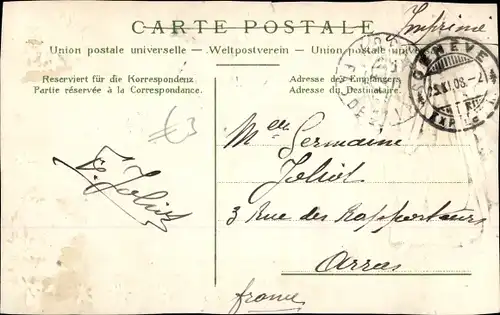 CARTE POSTALE
Imprimé
Union postale universelle — Weltpostverein — Union postale
Reserviert für die Korrespondenz
Partie réservée à la Correspondance.
Adresse des Empfängers
Adresse du Destinataire.
GENÈVE
XI.08.
Melle Germaine
Joliot
3 Rue des Rapporteurs
Arras
france
Joliot